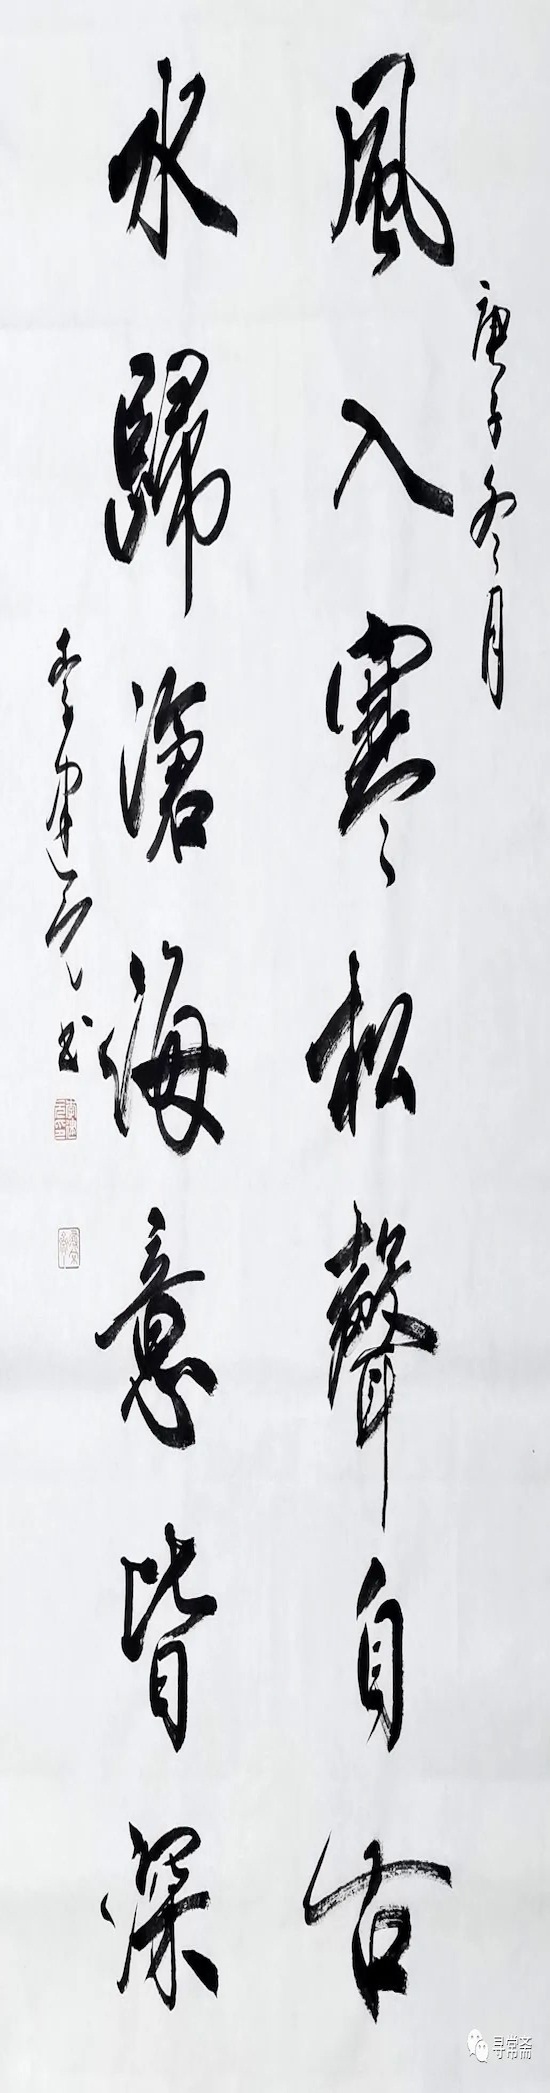 庚子冬月
風入寒松聲自古
水歸滄海意皆深
李建 书
寻常斋